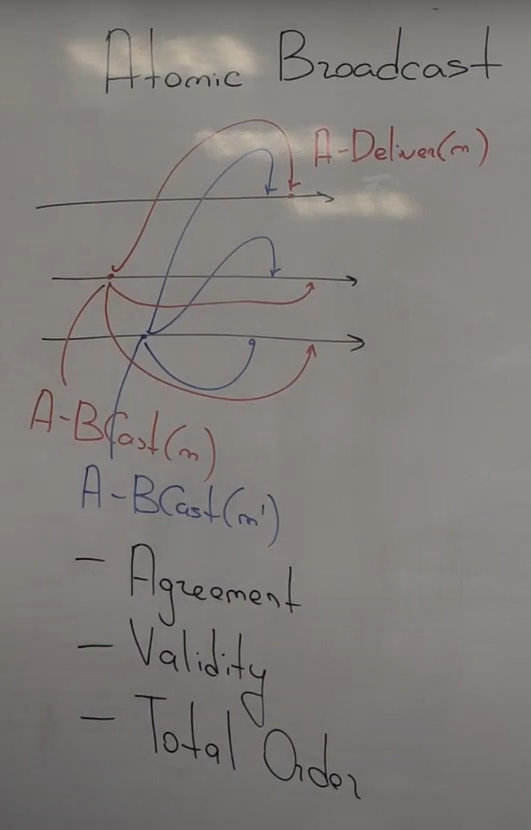 Atomic Broadcast
A-Deliver(m)
A-BCast(m)
A-BCast(m')
- Agreement
- Validity
- Total Order